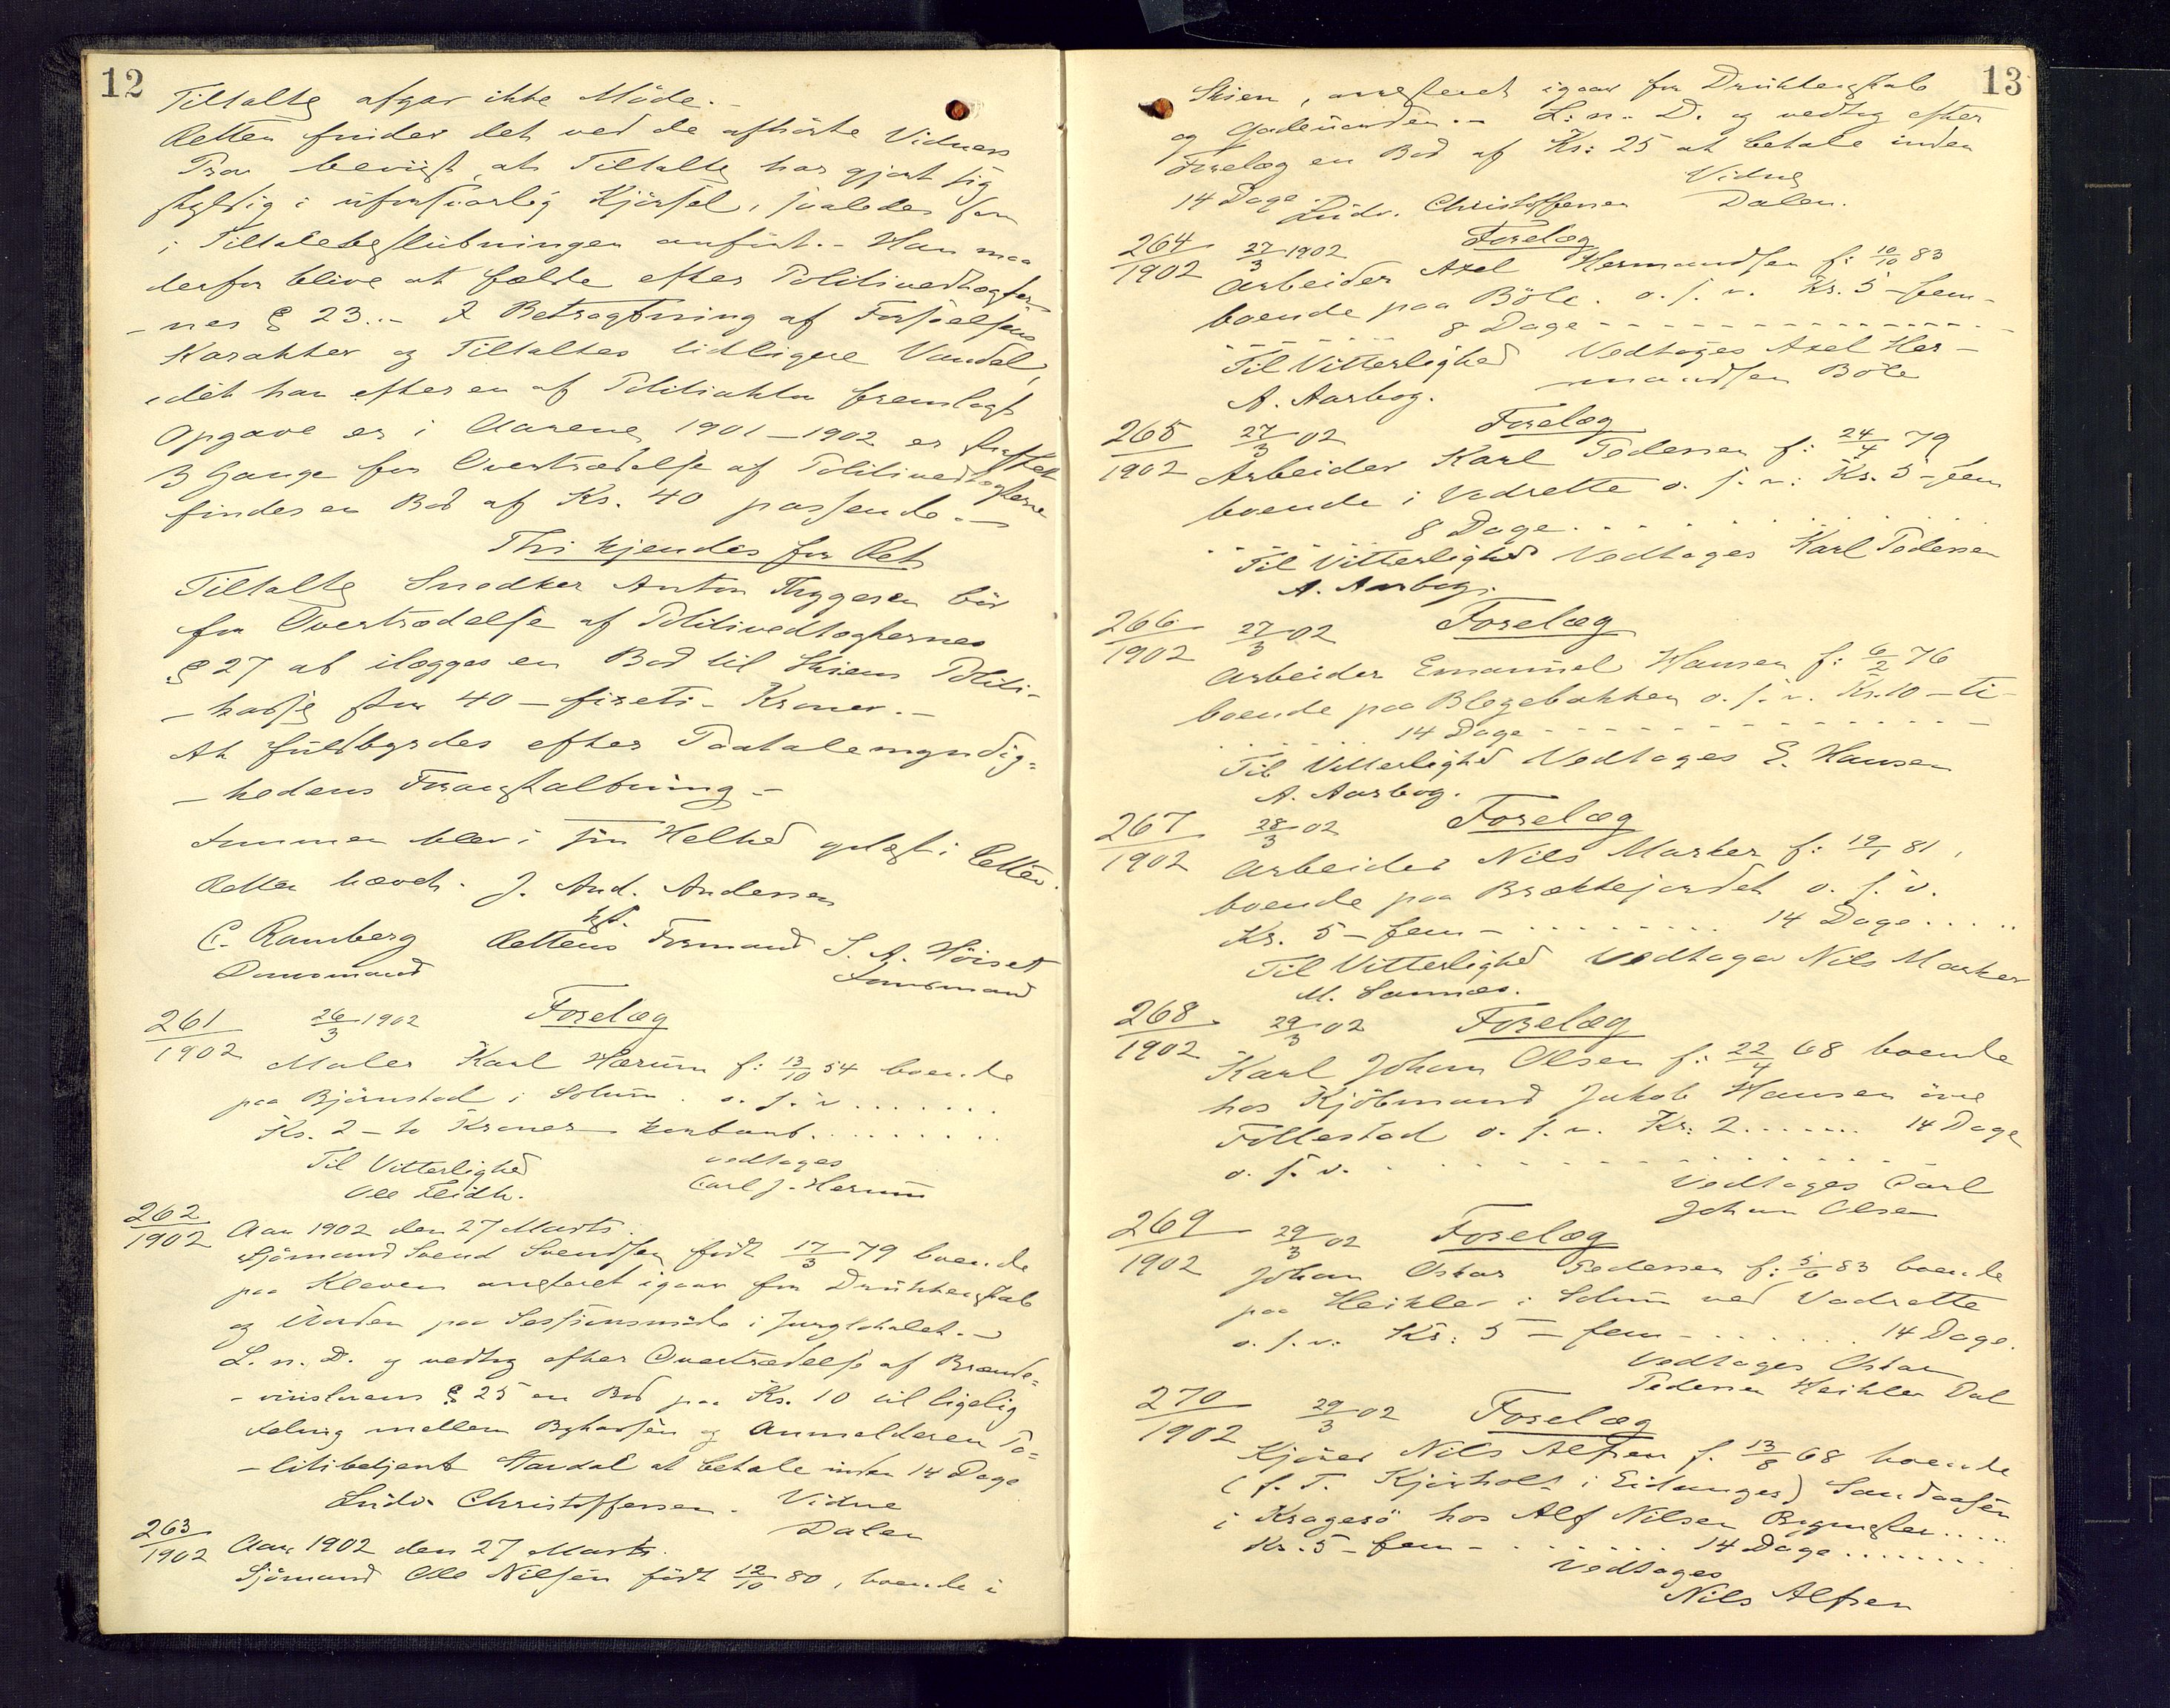 12
Tiltalte afgav ikke Møde.-
Retten finder det ved de afhørte Vidners
Prov bevist, at Tiltalte har gjort sig
skyldig i uforsvarlig Kjørsel, saaledes som
i Tiltalebeslutningen anført.- Han maa
derfor blive at fælde efter Politivedtægter-
-nes § 23.- I Betragtning af Forseelsens
Karakter og Tiltaltes tidligere Vandel,
idet han efter en af Politiakter fremlagt
Opgave er i Aarene 1901-1902 er straffet
3 Gange for Overtrædelse af Politivedtægterne
findes en Bod af Kr. 40 passende.-
Thi kjendes for Ret
Tiltalte Snedker Anton Thygesen bør
for Overtrædelse af Politivedtægternes
§ 27 at ilægges en Bod til Skiens Politi-
-kasse stor 40 - fireti - Kroner.-
At fuldbyrdes efter Paatalemyndig=
-hedens Foranstaltning -
Dommen blev i sin Helhed oplæst i Retten.
Retten hævet. J. And. Andersen
kst.
C. Ramberg Rettens Formand S. A. Höiset
Domsmand Domsmand
261/1902 26/3 1902 Forelæg
Maler Karl Hærum f: 13/10 54 boende
paa Bjørnstad i Solum. o. s. v. . . . . . .
Kr. 2 - to Kroner - kontant. . . . . . . .
Til Vitterlighed vedtages
Ole Eidh. Carl J. Herum
262/1902 Aar 1902 den 27 Marts.
Sjømand Svend Svendsen født 17/3 79 boende
paa Kleven arresteret igaar for Drukkenskab
og Uorden paa Sessionsmøde i
L. n. D. og vedtog efter Overtrædelse af Brænde=
-vinslovens § 25 en Bod paa Kr. 10 til ligelig
deling mellem Bykassen og Anmelderen Po=
-litibetjent Stavdal at betale inden 14 Dage
Ludv. Christoffersen. Vidne
Dalen
263/1902 Aar 1902 den 27 Marts.
Sjømand Ole Nilsen født 12/10 80, boende i
13
Skien, arresteret igaar for Drukkenskab
og Gadeuorden.- L. n. D. og vedtog efter
Forelæg en Bod af Kr: 25 at betale inden
14 Dage. Vidne
Ludv. Christoffersen Dalen.
264/1902 27/3 1902 Forelæg
Arbeider Axel Hermandsen f: 10/10 83
boende paa Böle. o. s. v. Kr. 5 - fem -
8 Dage - - - - - - - - - -
Til Vitterlighed Vedtages Axel Her-
A. Aarbog. mandsen Böle
265/1902 27/3 02 Forelæg
Arbeider Karl Pedersen f: 24/4 79
boende i Vadrette o. s. v: Kr. 5 - fem
8 Dage. . . . . . . .
Til Vitterlighed Vedtages Karl Pedersen
A. Aarbog.
266/1902 27/3 02 Forelæg
Arbeider Emanuel Hansen f: 6/2 76
boende paa Blegebakken o. s. v. Kr. 10 - ti -
14 Dage - - - - - - - -
Til Vitterlighed Vedtages E. Hansen
A. Aarbog.
267/1902 28/3 02 Forelæg
Arbeider Nils Marker f: 19/1 81,
boende paa Brækkejordet o. s. v.
Kr. 5 - fem - . . . . . . . . 14 Dage. . . . .
Til Vitterlighed Vedtages Nils Marker
M. Sannæs.
268/1902 29/3 02 Forelæg
Karl Johan Olsen f: 22/4 68 boende
hos Kjöbmand Jakob Hansen övre
Follestad o. s. v. Kr: 2. . . . . . 14 Dage
o. s. v. . . . . . . . . .
Vedtages Carl
Johan Olsen
269/1902 29/3 02 Forelæg
Johan Oskar Pedersen f: 5/6 83 boende
paa Heikler i Solum ved Vadrette
o. s. v. Kr: 5 - fem - . . . . . . 14 Dage.
Vedtages Oskar
Pedersen Heikler Dal
270/1902 29/3 02 Forelæg
Kjører Nils Alfsen f. 13/8 68 boende
(f. T. Kjørholt i Eidanger) Sandaasen
i Kragerö hos Alf Nilsen Bygmester. . . .
Kr. 5 - fem - . . . . . . 14 Dage. . . . . . . .
Vedtages
Nils Alfsen